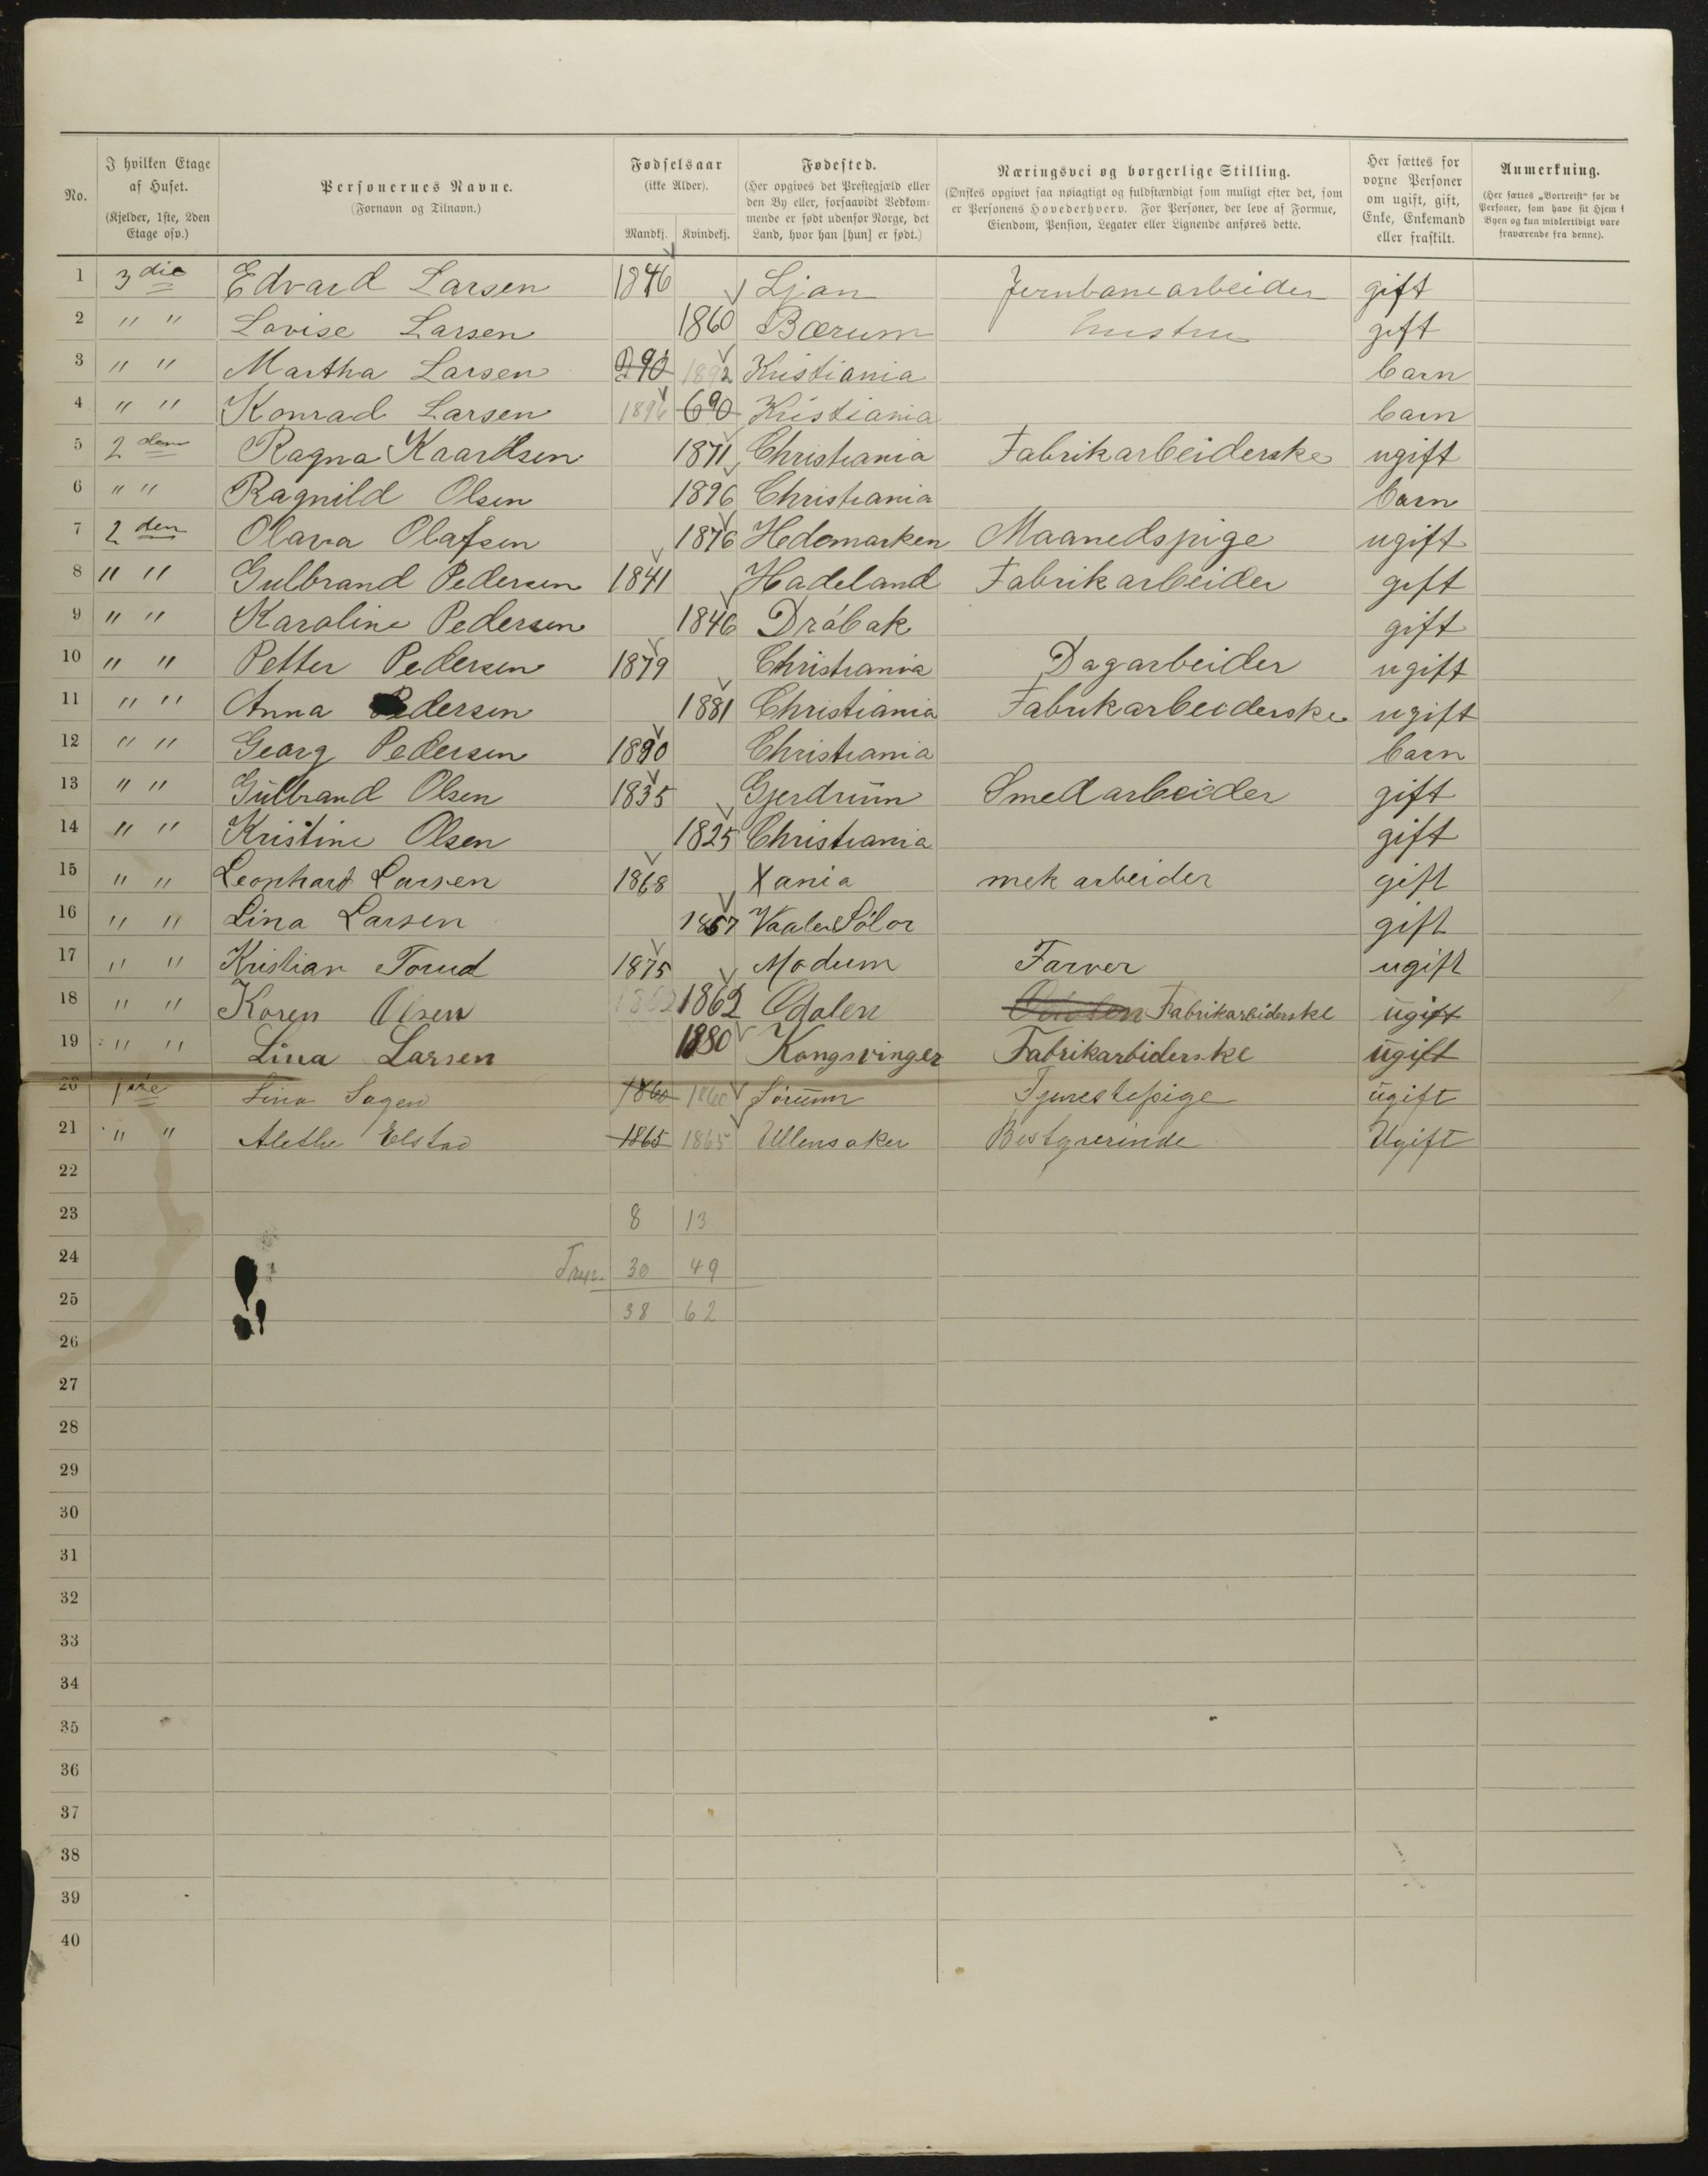 No.
I hvilken Etage af Huset. (Kjelder, 1ste, 2den Etage osv.)
Personernes Navne. (Fornavn og Tilnavn.)
Fødselsaar (ikke Alder). Mandkj. Kvindekj.
Fødested. (Her opgives det Prestegjæld eller den By eller, forsaavidt Vedkommende er født udenfor Norge, det Land, hvor han [hun] er født.)
Næringsvei og borgerlige Stilling. (Ønskes opgivet saa nøiagtigt og fuldstændigt som muligt efter det, som er Personens Hovederhverv. For Personer, der leve af Formue, Eiendom, Pension, Legater eller Lignende anføres dette.
Her sættes for voxne Personer om ugift, gift, Enke, Enkemand eller fraskilt.
Anmerkning. (Her sættes „Bortreist“ for de Personer, som have sit Hjem i Byen og kun midlertidigt vare fraværende fra denne).
1 3die Edvard Larsen 1846 Ljan Jernbanearbeider gift
2 " " Lovise Larsen 1860 Bærum hustru gift
3 " " Martha Larsen 1892 Kristiania barn
4 " " Konrad Larsen 1896 690 Kristiania barn
5 2den Ragna 1871 Christiania Fabrikarbeiderske ugift
6 " " Ragnild Olsen 1896 Christiania barn
7 2den Olava Olafsen 1876 Hedemarken Maanedspige ugift
8 " " Gulbrand Pedersen 1841 Hadeland Fabrikarbeider gift
9 " " Karoline Pedersen 1846 Dröbak gift
10 " " Petter Pedersen 1879 Christiania Dagarbeider ugift
11 " " Anna Pedersen 1881 Christiania Fabrikarbeiderske ugift
12 " " Georg Pedersen 1890 Christiania barn
13 " " Gulbrand Olsen 1835 Gjerdrum Smedarbeider gift
14 " " Kristine Olsen 1825 Christiania gift
15 " " Leonhard Larsen 1868 Xania mek arbeider gift
16 " " Lina Larsen 1867 Vaaler Sölor gift
17 " " Kristian Torud 1875 Modum Farver ugift
18 " " Karen Olsen 1862 1862 Odalen Fabrikarbiderske ugift
19 " " Lina Larsen 1880 Kongsvinger Fabrikarbiderske ugift
20 1ste Lina Sagen 1860 1860 Sörum Tjenestepige ugift
21 " " Alethe Elstad 1865 1865 Ullensaker Bestyrerinde Ugift
22
23 8 13
24 30 49
25 38 62
26
27
28
29
30
31
32
33
34
35
36
37
38
39
40